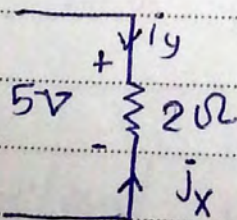 iy
+
5V 2Ω
-
jx